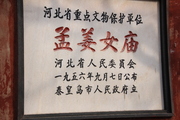 河北省重点文物保护单位
孟姜女庙
河北省人民委员会
一九五六年九月七日公布
秦皇岛市人民政府立